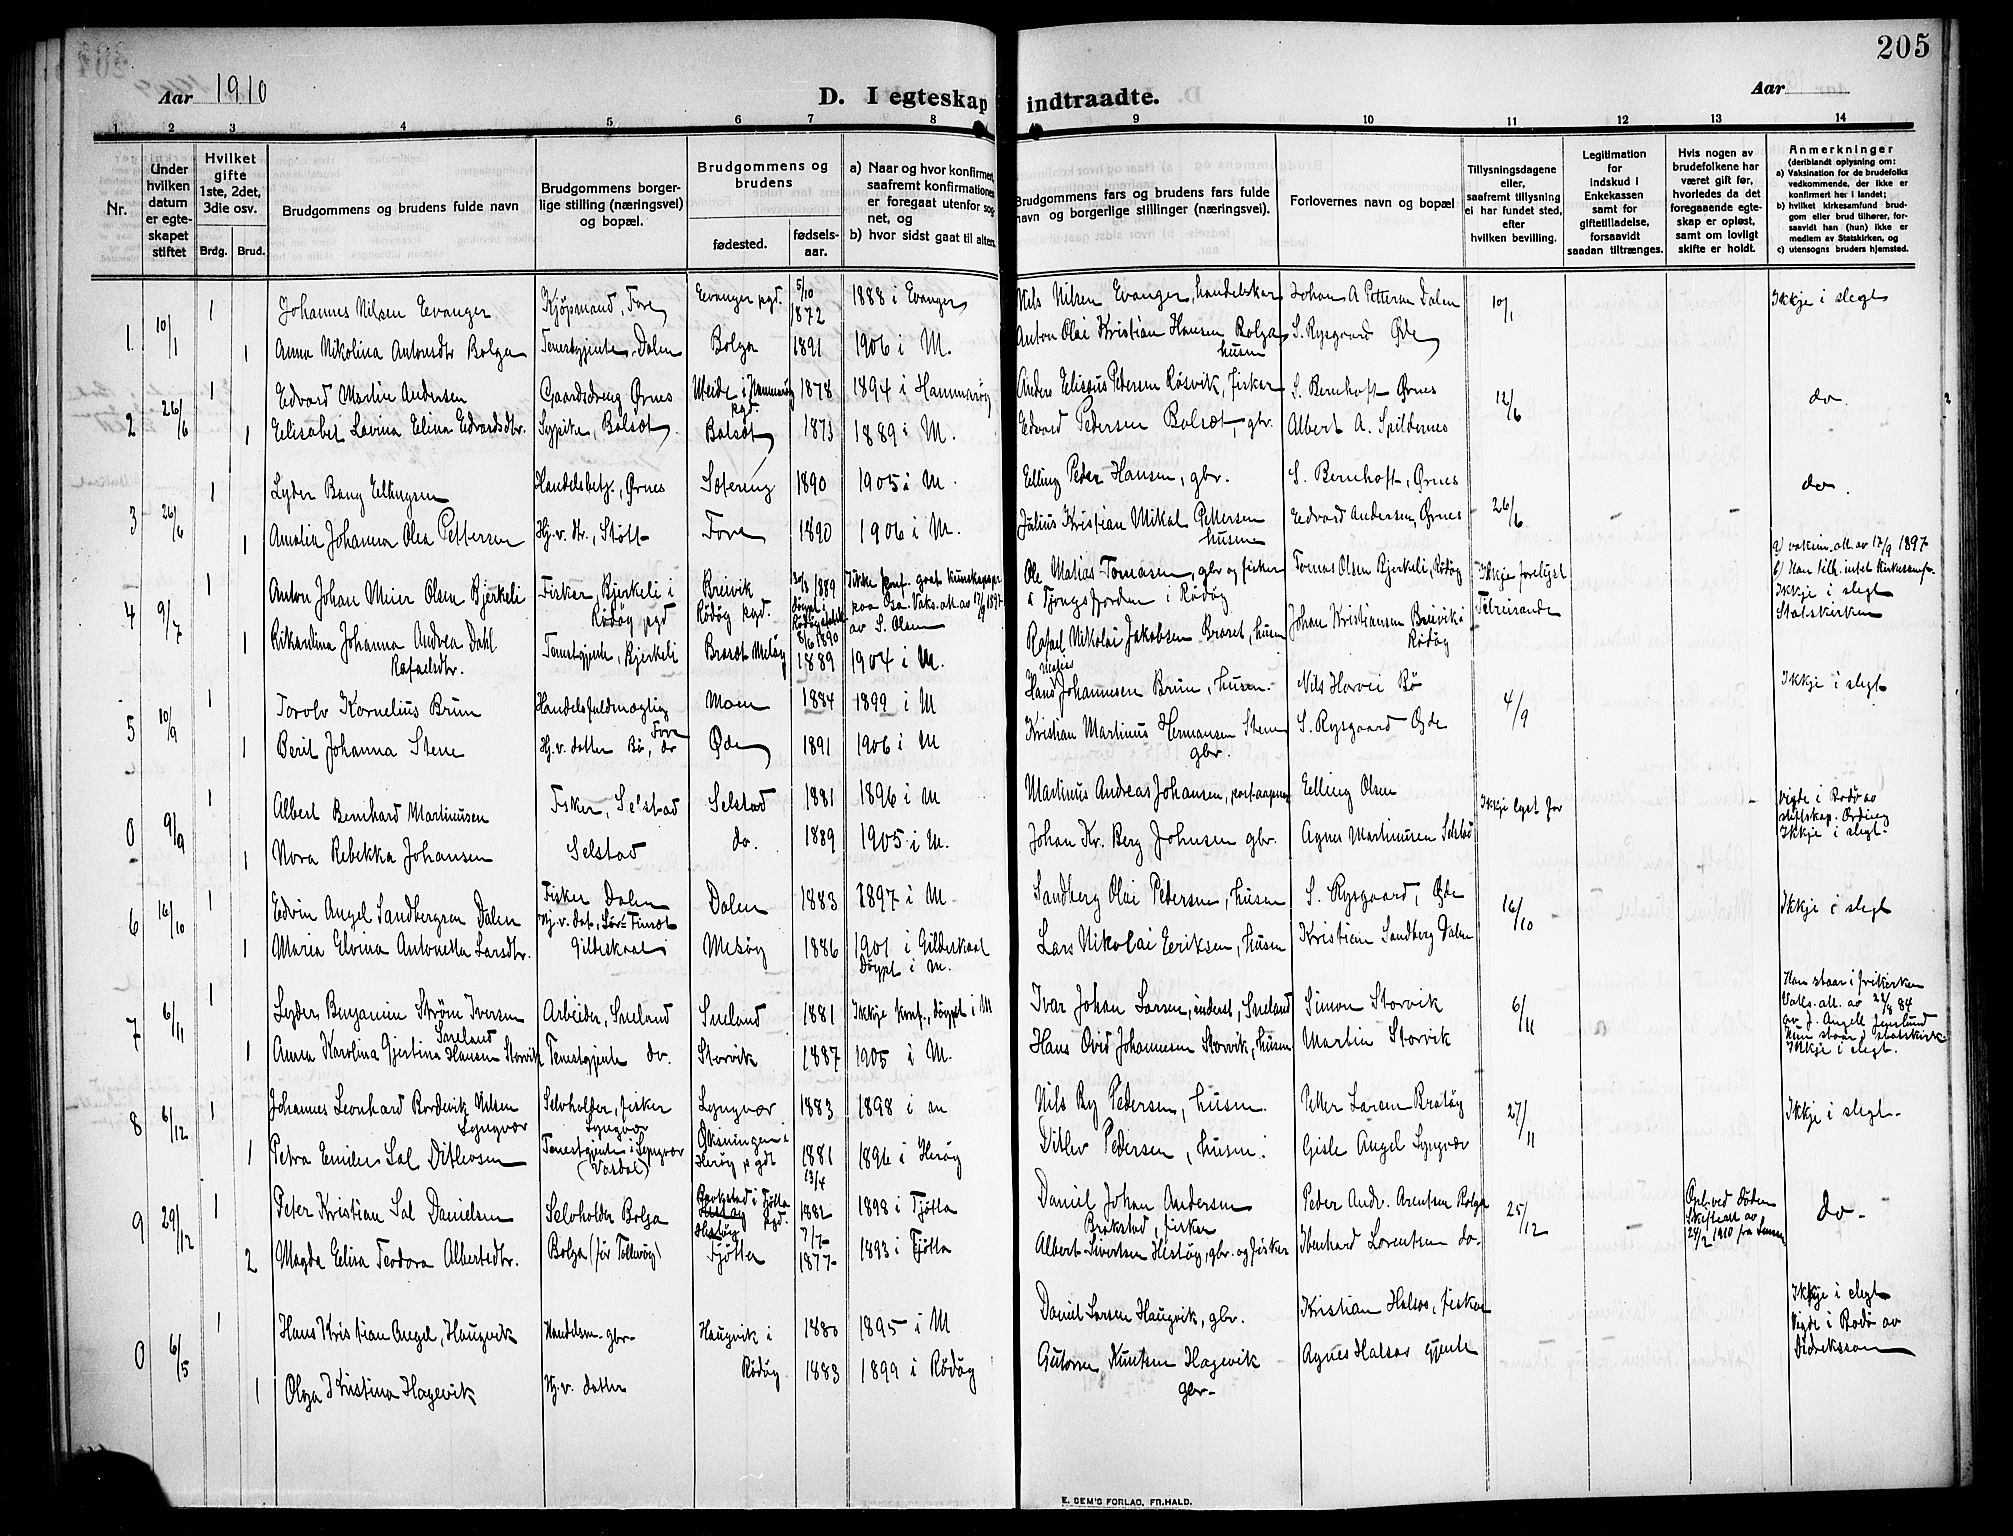 205
Aar 1910
D. I egteskap indtraadte.
Aar
1 2 3 4 5 6 7 8 9 10 11 12 13 14
Nr.
Under hvilken datum er egteskapet stiftet
Hvilket gifte 1ste, 2det, 3die osv.
Brdg. Brud.
Brudgommens og brudens fulde navn
Brudgommens borgerlige stilling (næringsvei) og bopæl.
Brudgommens og brudens
fødested. fødselsaar.
a) Naar og hvor konfirmert, saafremt konfirmationen er foregaat utenfor sognet, og
b) hvor sidst gaat til alters.
Brudgommens fars og brudens fars fulde navn og borgerlige stillinger (næringsvei).
Forlovernes navn og bopæl
Tillysningsdagene eller, saafremt tillysning ei har fundet sted, efter hvilken bevilling.
Legitimation for indskud i Enkekassen samt for giftetilladelse, forsaavidt saadan tiltrænges.
Hvis nogen av brudefolkene har været gift før, hvorledes da det foregaaende egteskap er opløst, samt om lovligt skifte er holdt.
Anmerkninger
(deriblandt oplysning om:
a) Vaksination for de brudefolks vedkommende, der ikke er konfirmert her i landet;
b) hvilket kirkesamfund brudgom eller brud tilhører, forsaavidt han (hun) ikke er medlem av Statskirken, og
c) utensogns bruders hjemsted.
1 10/1 1 Johannes Nilsen Evanger Kjøpmand, Fore Evanger pgd. 5/10 1872 1888 i Evanger Nils Nilsen Evanger, handelskar Johan A Petterson Dalen 10/1 Ikkje i slegt
1 Anna Nikolina Antonsdtr Bolga Tenestgjente, Dalen Bolga 1891 1906 i M. Anton Olai Kristian Hansen Bolga husm S. Rysgaard Øde
2 26/6 1 Edvard Martin Andersen Gaardsdreng Ørnes 1878 1894 i Hammarøy Anders Elisæus Petersen Røsvik, fisker S. Bernhoft Ørnes 12/6 do.
1 Elisabet Lovina Elina Edvardsdtr. Sypike, Bolsæt Bolsæt 1873 1889 i M. Edvard Pedersen Bolsæt, gbr. Albert A. Spildernes
3 26/6 1 Lyder Bang Ellingsen Handelsbetj., Ørnes Sætereng 1890 1905 i M. Elling Peder Hansen, gbr. S. Bernhoft, Ørnes 26/6 do.
1 Amalia Johanna Olea Pettersen Hj.v. dtr., Støtt Fore 1890 1906 i M. Julius Kristian Mikal Pettersen husm Edvard Andersen, Ørnes
4 9/7 1 Anton Johan Meier Olsen Bjerkeli Fisker, Bjerkeli i Rødøy pgd Breivik Rødøy pgd. 30/8 1889 Ikke konf. Ole Matias Tomasen, gbr og fisker i Tjongsfjorden i Rødøy Tomas Olsen Bjerkeli, Rødøy Ikkje forelyst a) vaksin. att. av 17/9 1897 b) Han tilh. intet kirkesamf. Ikkje i slegt Statskirken
1 Rikardina Johanna Andrea Dahl Rafaelsdtr. Tenestgjente, Bjerkeli Braset Meløy 1889 1904 i M. Rafael Nikolai Jakobsen Braset, husm Johan Kristiansen Breivik i Rødøy
5 10/9 1 Torolv Kornelius Brun Handelsfuldmægtig Fore Moen 1884 1899 i M Hans Johannesen Brun, husm. Nils Horvei Bø 4/9 Ikkje i slegt
1 Berit Johanna Stene Hj.v. datter Bø, do Øde 1891 1906 i M Kristian Martinus Hermansen Stene gbr. S. Rysgaard Øde
0 9/9 1 Albert Bernhard Martinusen Fisker, Selstad Selstad 1881 1896 i M Martinus Andreas Johansen, Elling Olsen Ikkje lyst for Vigde i Rødø av Ikkje i slegt.
1 Nora Rebekka Johansen Selstad do. 1889 1905 i M. Johan Kr. Berg Johnsen gbr. Agnes Martinusen Selstad
6 16/10 1 Edvin Angel Sandbergsen Dalen Fisker Dalen Dalen 1883 1897 i M. Sandberg Olai Pedersen, husm S. Rysgaard, Øde 16/10 Ikkje i slegt
1 Maria Elvina Antonetta Larsdtr. Hj.v. dat., Sør-Finset Gildeskaal Mesøy 1886 1901 i Gildeskaal Døypt i M. Lars Nikolai Eriksen, husm Kristian Sandberg Dalen
7 6/11 1 Lyder Benjamin Strøm Iversen Sneland Arbeider, Sneland Sneland 1881 Ikkje konf., døypt i M Ivar Johan Larsen, inderst, Sneland Simon Storvik 6/11 Han staar i frikirken Vaks. att. av 22/8 84 av J. Angell Jenslund Hun staar i statskirk Ikkje i slegt.
1 Anna Karolina Gjertina Hansen Storvik Tenestgjente do. Storvik 1887 1905 i M. Hans Ovid Johannesen Storvik, husm Martin Storvik
8 6/12 1 Johannes Leonhard Bordevik Nilsen Lyngvær Selvholder, fisker Lyngvær Lyngvær 1883 1898 i M Nils By Pedersen, husm. Petter Larsen Brotøy 27/11 Ikkje i slegt.
1 Petra Emilie Sal Ditlevsen Tenestgjente i Lyngvær Herøy pgd 1881 1896 i Herøy Ditlev Pedersen, husm. Gisle Angel Lyngvær
9 29/12 1 Peter Kristian Sal Danielsen Selvholder Bolga Brokstad i Tjøtta pgd. 13/4 1882 1898 i Tjøtta Daniel Johan Andersen Brokstad, fisker Peder Andr. Arentsen Bolga 25/12 Opl. ved døden Skifteatt av 24/2 1910 do.
2 Magda Elisa Teodora Albertsdtr. Bolga (før Tollerøy) Hestøy Tjøtta 7/7 1877 1893 i Tjøtta Albert Sivertsen Hestøy, gbr. og fisker Ibenhard Lorentsen do.
0 6/5 1 Hans Kristian Angel, Haugvik Handelsm. gbr. Haugvik i Rødøy 1880 1895 i M Daniel Larsen Haugvik, gbr. Kristian Halsos, fisker Ikkje i slegt Vigde i Rødø av Didriksson
1 Olga Kristina Hagevik Hj.v. datter 1883 1899 i Rødøy Gutorm Knutsen Hagevik gbr. Agnes Halsos gjente
E. SEM'S FORLAG, FR.HALD.